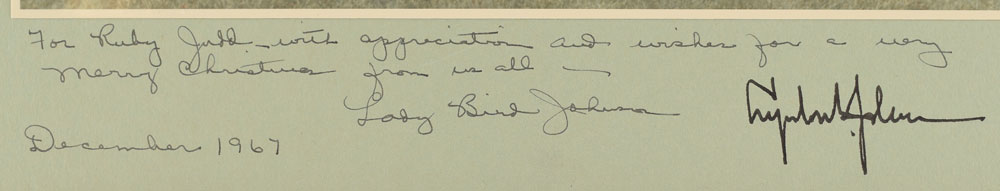 For Ruby Judd - with appreciation and wishes for a very
Merry Christmas from us all —
Lady Bird Johnson
Lyndon B. Johnson
December 1967